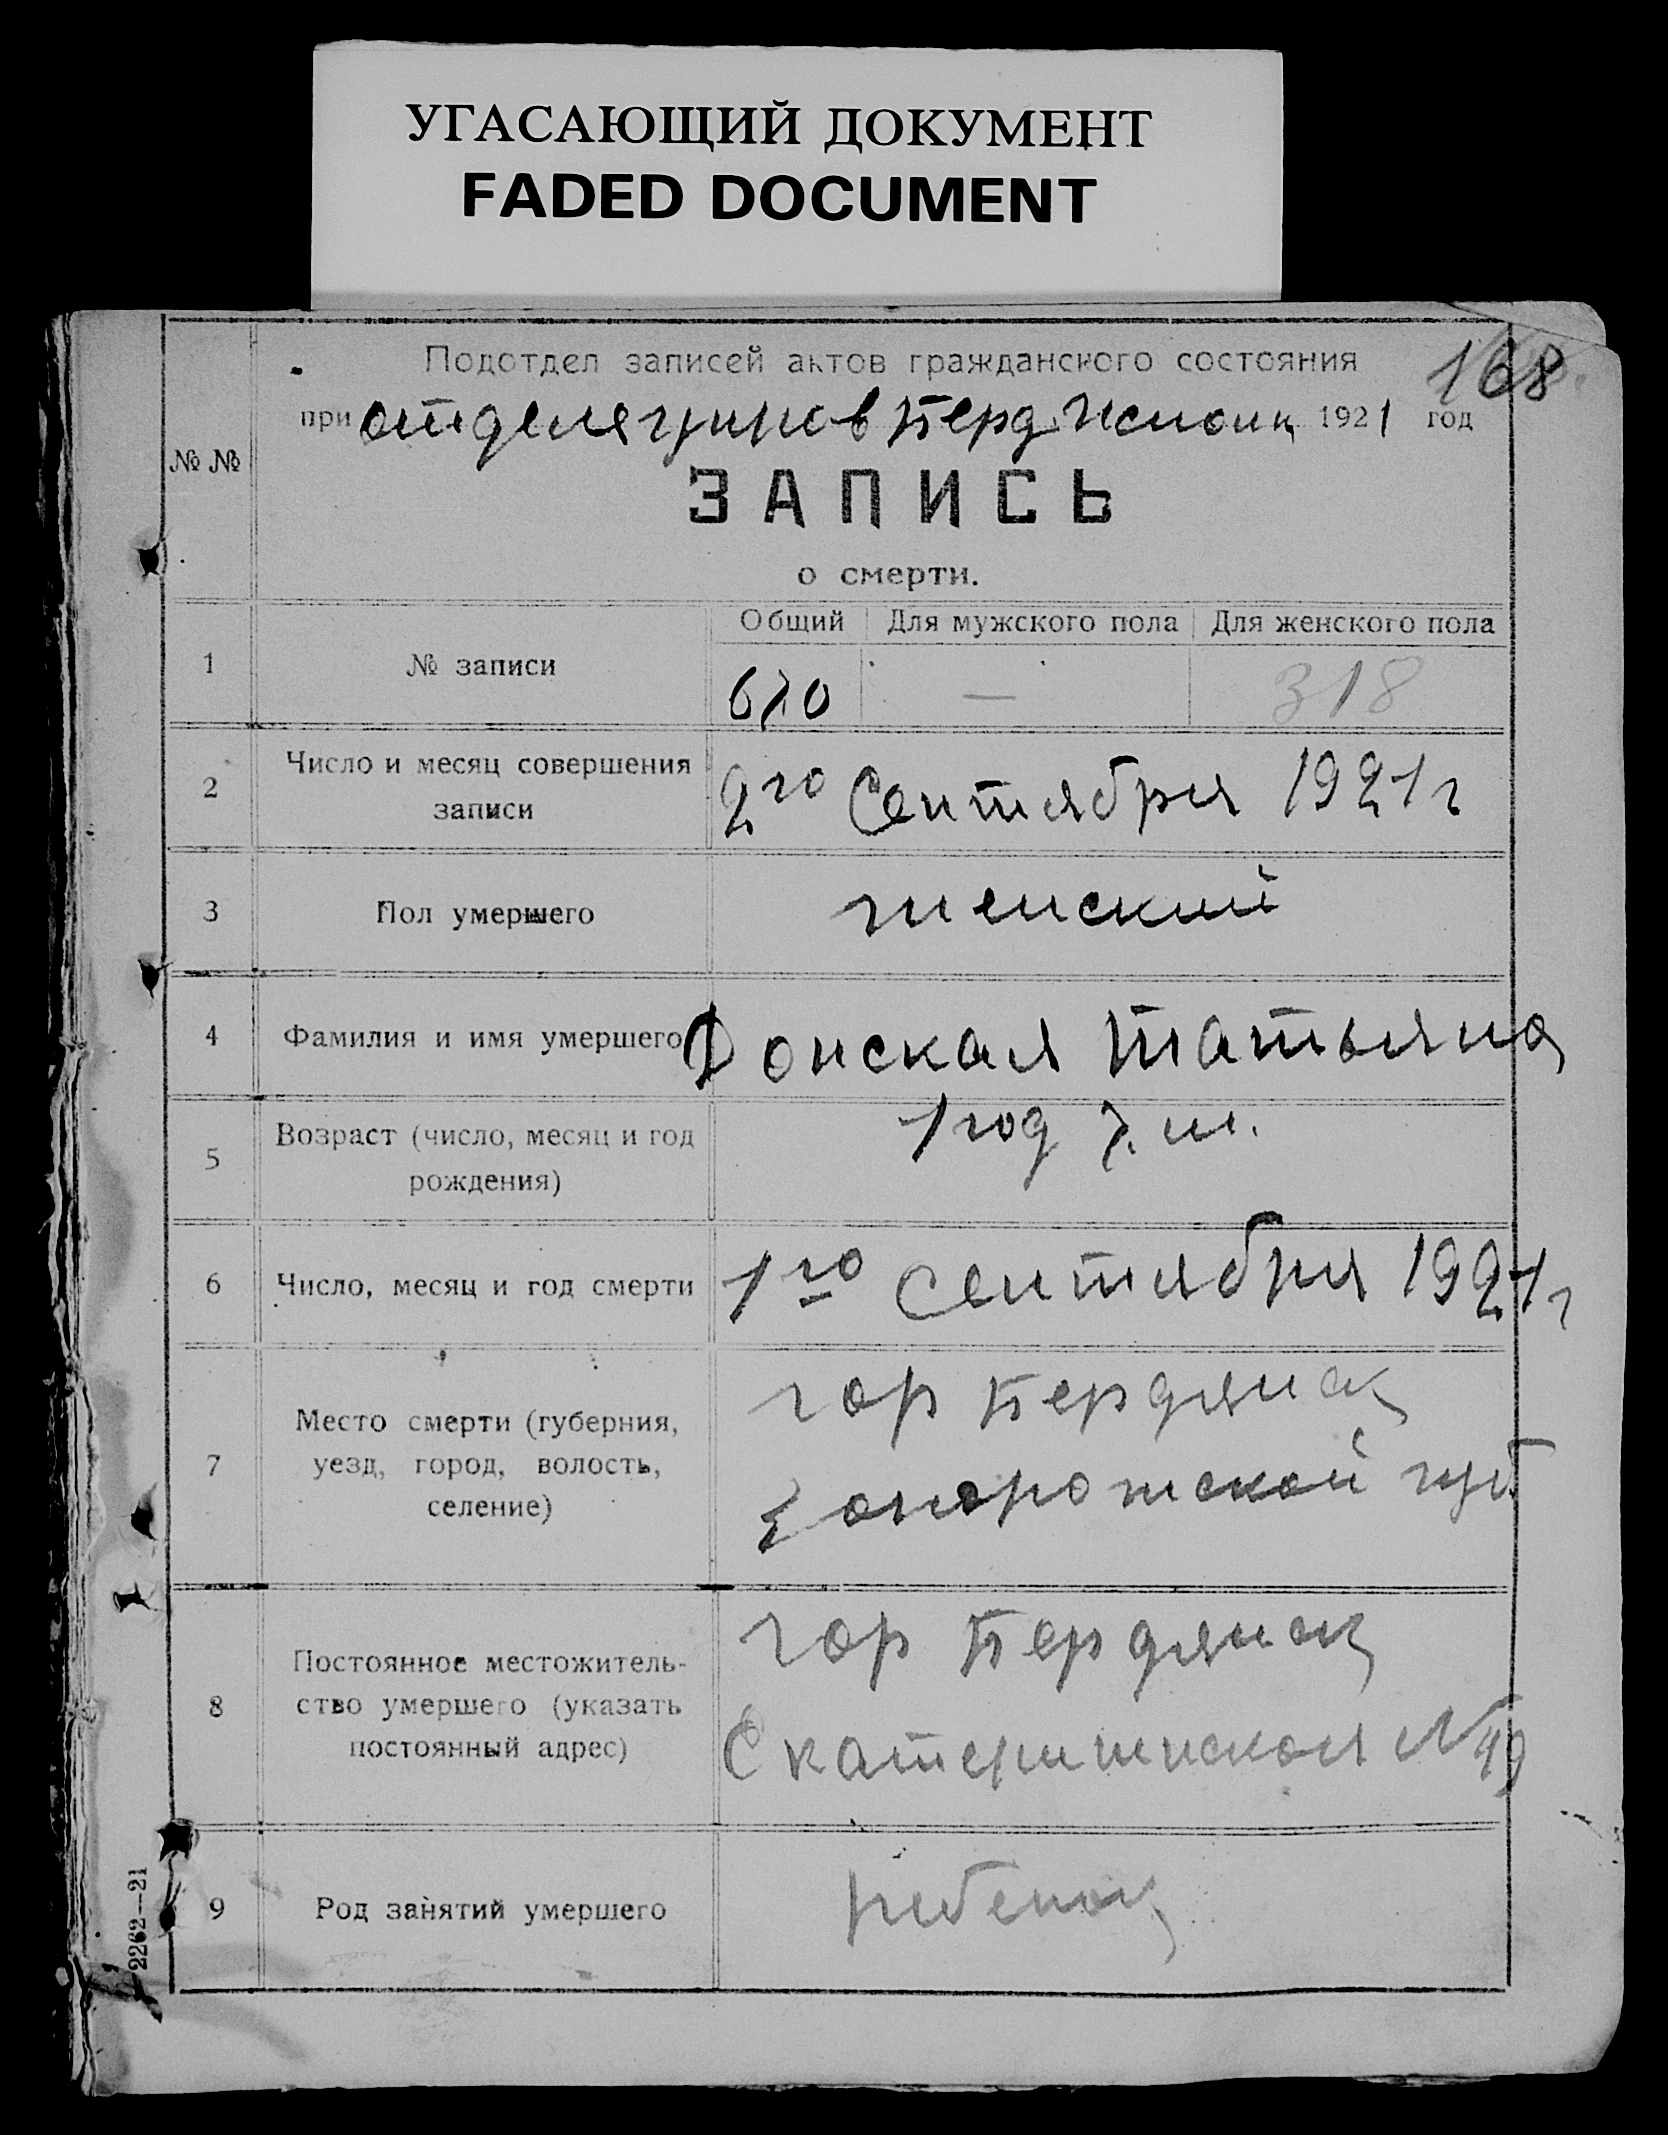 УГАСАЮЩИЙ ДОКУМЕНТ
FADED DOCUMENT
168
Подотдел записей актов гражданского состояния
при отделе Берд 1921 год
№ №
ЗАПИСЬ
о смерти.
Общий Для мужского пола Для женского пола
1 № записи 670 — 318
2 Число и месяц совершения записи 2го Сентября 1921 г
3 Пол умершего женский
4 Фамилия и имя умершего Донская Татьяна
5 Возраст (число, месяц и год рождения) 1 год 7. м.
6 Число, месяц и год смерти 1го Сентября 1921 г
7 Место смерти (губерния, уезд, город, волость, селение) гор Бердянск
губ
8 Постоянное местожитель-
ство умершего (указать
постоянный адрес) гор Бердянск
Екатерининская № 49
9 Род занятий умершего ребенок
2262—21